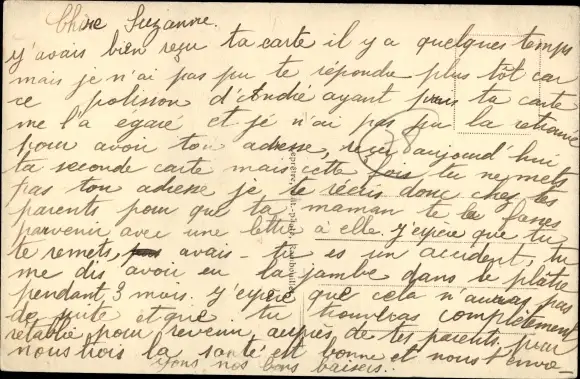 Chère Suzanne.
J'avais bien reçu ta carte il y a quelques temps
mais je n'ai pas pu te répondre plus tôt car
ce polisson d'André ayant pris ta carte
me l'a egaré et je n'ai pas pu la retrouver
pour avoir ton adresse, reçu aujourd'hui
ta seconde carte mais cette fois tu ne mets
pas ton adresse je te récris donc chez tes
parents pour que ta maman te la fasse
parvenir avec une lettre à elle. J'espère que tu
te remets, avais-tu es un accident, tu
me dis avoir eu la jambe dans le plâtre
pendant 3 mois. J'espère que cela n'auras pas
de suite et que tu trouveras complètement
rétablie pour revenir auprès de tes parents. pour
nous trois la santé est bonne et nous t'envo-
yons nos bons baisers.